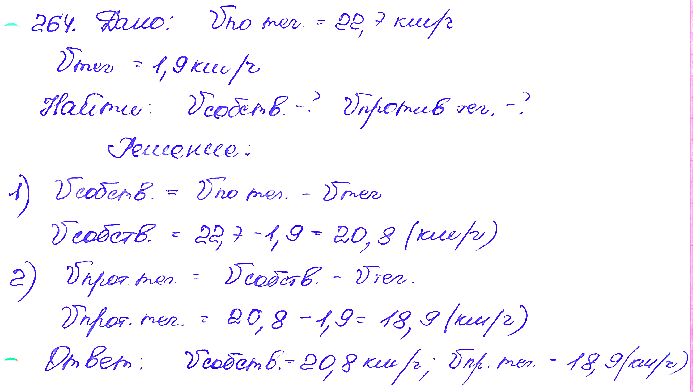 - 264. Дано: Vпо теч. = 22,7 км/ч
Vтеч = 1,9 км/ч
Найти: Vсобств. -? Vпротив теч. -?
Решение:
1) Vсобств. = Vпо теч. - Vтеч
Vсобств. = 22,7 - 1,9 = 20,8 (км/ч)
2) Vпрот. теч. = Vсобств. - Vтеч.
Vпрот. теч. = 20,8 - 1,9 = 18,9 (км/ч)
- Ответ: Vсобств. = 20,8 км/ч; Vпр. теч. - 18,9 (км/ч)